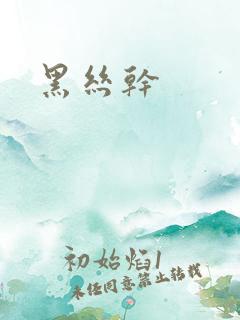 黑絲幹
初始焰1
未经同意禁止转载